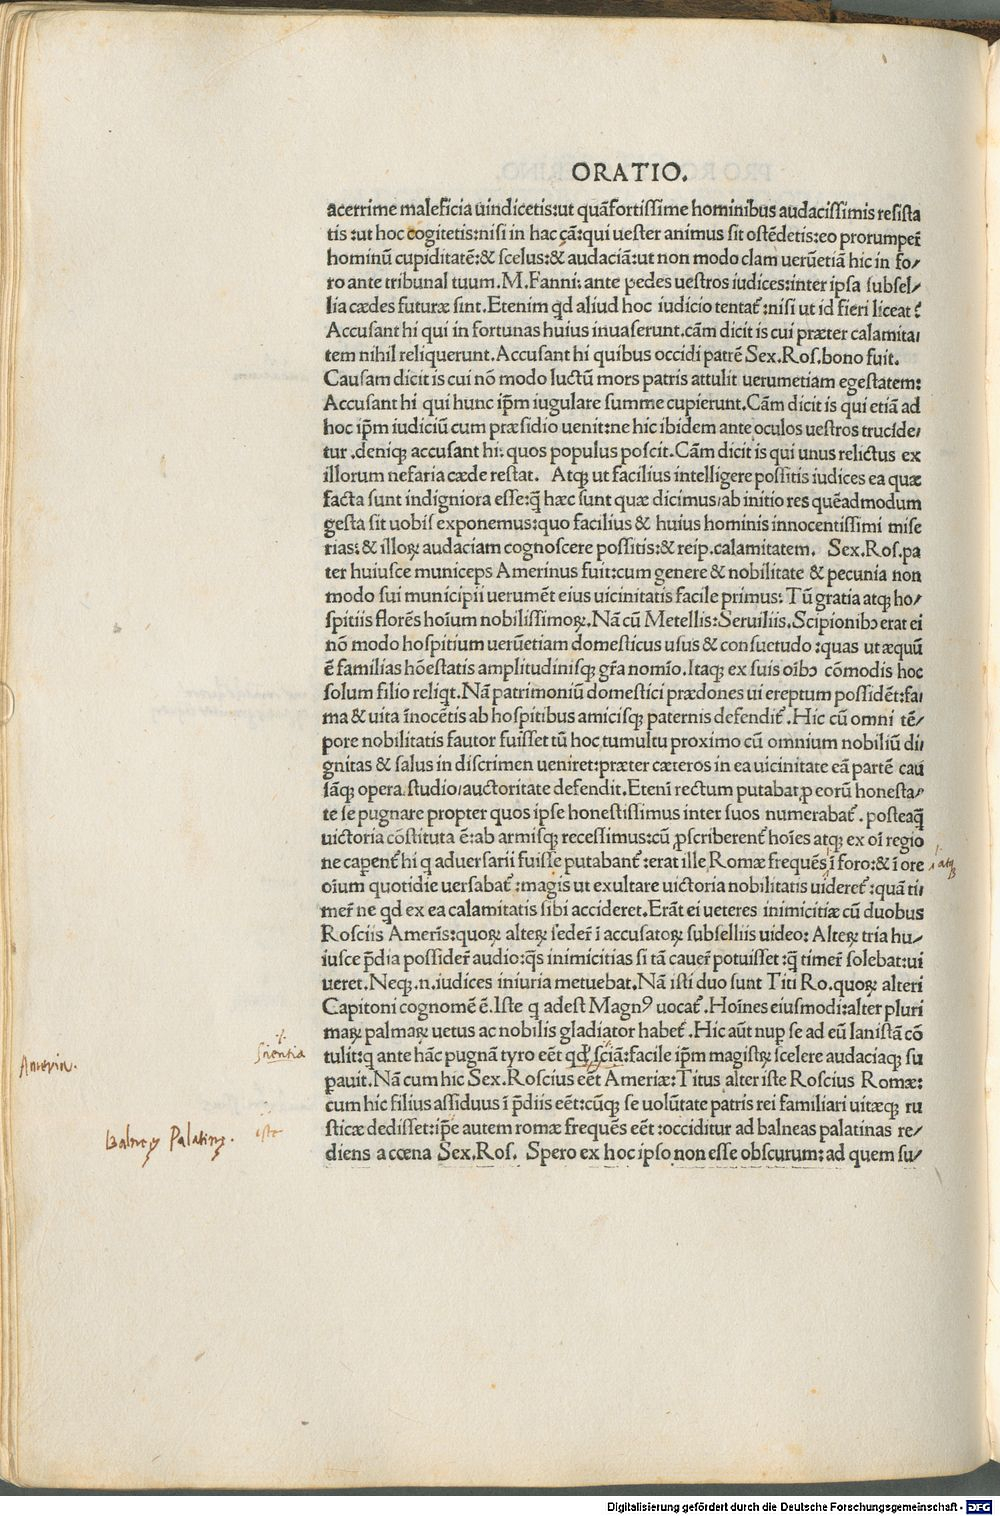 ORATIO.
acerrime maleficia uindicetis:ut quãfortissime hominibus audacissimis resista
tis :ut hoc cogitetis:nisi in hac cã:qui uester animus sit ostẽdetis:eo prorumper̃
hominũ cupiditatẽ:& scelus:& audaciã:ut non modo clam uerũetiã hic in fo/
ro ante tribunal tuum.M.Fanni: ante pedes uestros iudices:inter ipsa subsel/
lia cædes futuræ sint.Etenim qd aliud hoc iudicio tentat̃ :nisi ut id fieri liceat ?
Accusant hi qui in fortunas huius inuaserunt.cãm dicit is cui præter calamita/
tem nihil reliquerunt.Accusant hi quibus occidi patrẽ Sex.Ros.bono fuit.
Causam dicit is cui nõ modo luctũ mors patris attulit uerumetiam egestatem:
Accusant hi qui hunc ip̃m iugulare summe cupierunt.Cãm dicit is qui etiã ad
hoc ip̃m iudiciũ cum præsidio uenit:ne hic ibidem ante oculos uestros trucide/
tur .deniqꝫ accusant hi: quos populus poscit.Cãm dicit is qui unus relictus ex
illorum nefaria cæde restat. Atqꝫ ut facilius intelligere possitis iudices ea quæ
facta sunt indigniora esse:q̃ hæc sunt quæ dicimus/ab initio res quẽadmodum
gesta sit uobis exponemus:quo facilius & huius hominis innocentissimi mise
rias:& illoꝝ audaciam cognoscere possitis:& reip.calamitatem. Sex.Ros.pa
ter huiusce municeps Amerinus fuit:cum genere & nobilitate & pecunia non
modo sui municipii uerumẽt eius uicinitatis facile primus: Tũ gratia atqꝫ ho/
spitiis florẽs hoĩum nobilissimoꝝ.Nã cũ Metellis:Seruiliis.Scipionibꝰ erat ei
nõ modo hospitium uerũetiam domesticus usus & consuetudo :quas ut æquũ
ẽ familias hõestatis amplitudinisqꝫ gr̃a nomĩo.Itaqꝫ ex suis oĩbꝰ cõmodis hoc
solum filio reliqt.Nã patrimoniũ domestici prædones ui ereptum possidẽt:fa/
ma & uita ĩnocẽtis ab hospitibus amicisqꝫ paternis defendit̃.Hic cũ omni tẽ/
pore nobilitatis fautor fuisset tũ hoc tumultu proximo cũ omnium nobiliũ di/
gnitas & salus in discrimen ueniret:præter cæteros in ea uicinitate eã partẽ cau
sãqꝫ opera studio/auctoritate defendit.Etenĩ rectum putabat ꝑ eorũ honesta/
te se pugnare propter quos ipse honestissimus inter suos numerabat̃. posteaq̃
uictoria cõstituta ẽ:ab armisqꝫ recessimus:cũ ꝓscriberent̃ hoĩes atqꝫ ex oĩ regio
ne caperent̃ hi q aduersarii fuisse putabant̃ :erat ille Romæ frequẽs ĩ foro:& ĩ ore
oĩum quotidie uersabat̃ :magis ut exultare uictoria nobilitatis uideret̃ :quã ti/
mer̃ ne qd ex ea calamitatis sibi accideret.Erãt ei ueteres inimicitiæ cũ duobus
Rosciis Amerĩs:quoꝝ alteꝝ seder̃ ĩ accusatoꝝ subselliis uideo: Alteꝝ tria hu/
iusce p̃dia possider̃ audio:q̃s inimicitias si tã cauer̃ potuisset :q̃ timer̃ solebat:ui
ueret.Neqꝫ.n.iudices iniuria metuebat.Nã isti duo sunt Titi Ro.quoꝝ alteri
Capitoni cognomẽ ẽ.Iste q adest Magnꝰ uocat̃.Hoĩnes eiusmodi:alter pluri
maꝝ palmaꝝ uetus ac nobilis gladiator habet̃.Hic aũt nup̃ se ad eũ lanistã cõ
tulit:q ante hãc pugnã tyro eẽt qđ sciã:facile ip̃m magistꝝ scelere audaciaqꝫ su
ꝑauit.Nã cum hic Sex.Roscius eẽt Ameriæ:Titus alter iste Roscius Romæ:
cum hic filius assiduus ĩ p̃diis eẽt:cũqꝫ se uolũtate patris rei familiari uitæqꝫ ru
sticæ dedisset:ip̃e autem romæ frequẽs eẽt :occiditur ad balneas palatinas re/
diens a cœna Sex.Ros. Spero ex hoc ipso non esse obscurum: ad quem su/
atqꝫ
scientia
Amerin.
iste
Balneꝫ Palatinꝫ.
Digitalisierung gefördert durch die Deutsche Forschungsgemeinschaft - DFG